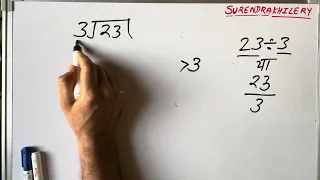 SURENDRAKHILERY
3⟌23
>3
23÷3
या
23
3